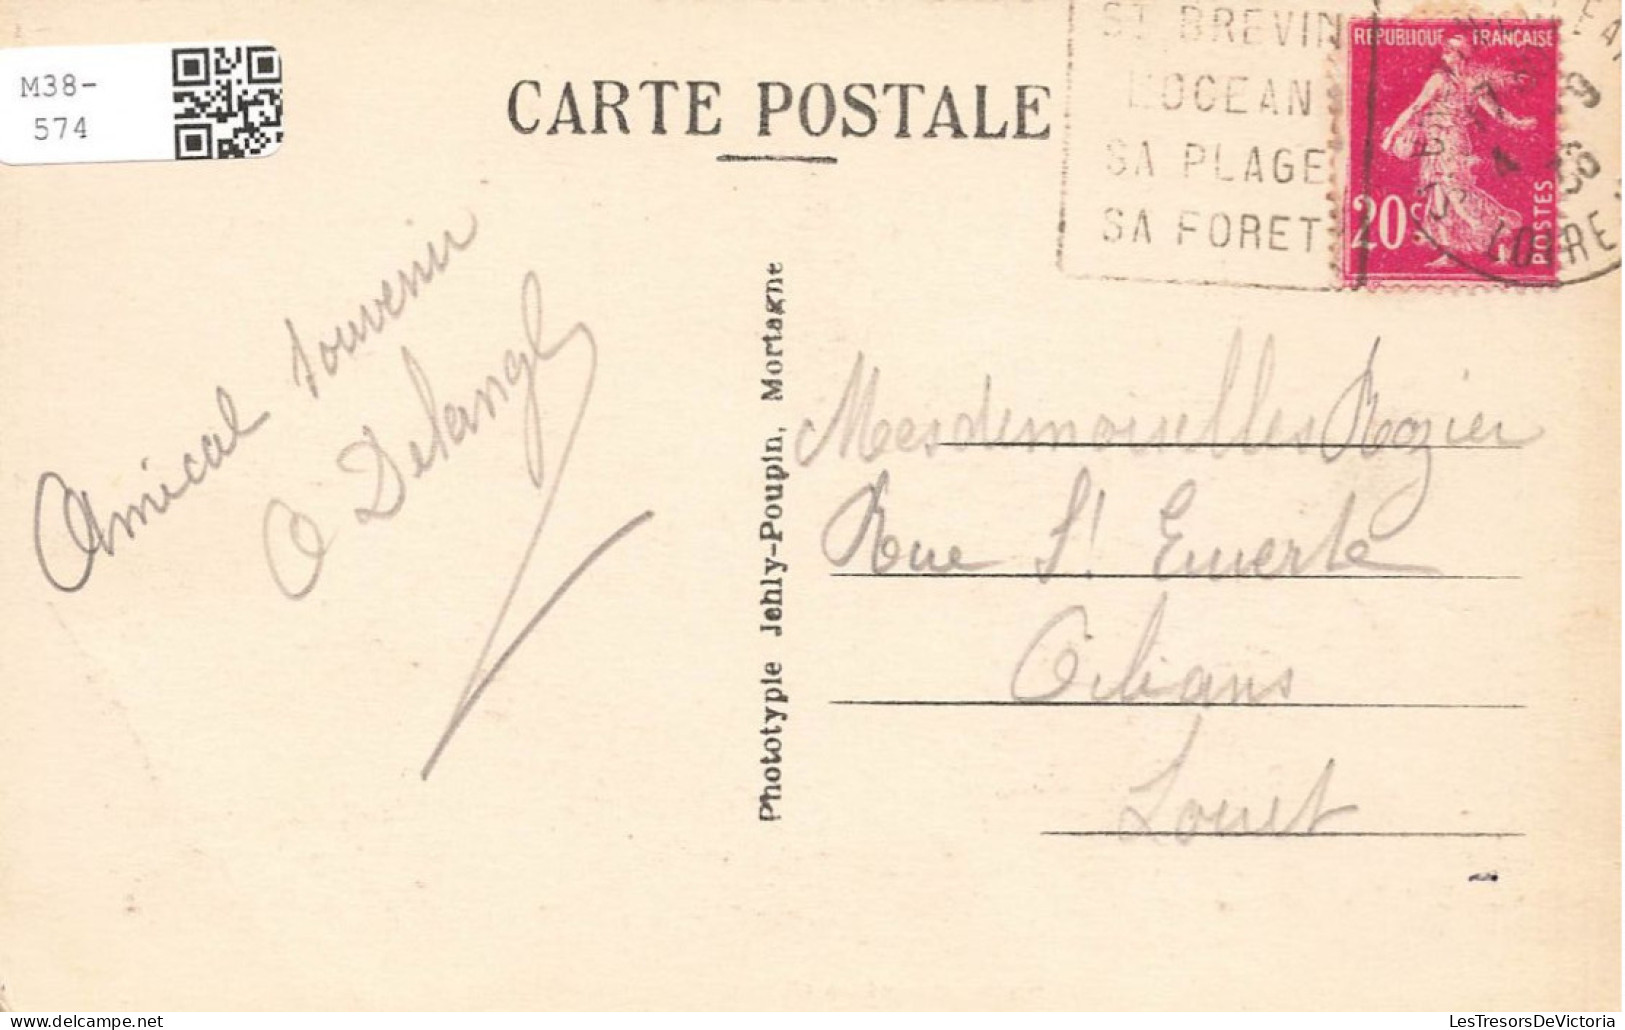 M38-
574
CARTE POSTALE
ST BREVIN
L'OCEAN
SA PLAGE
SA FORET
REPUBLIQUE FRANÇAISE
20c
POSTES
LOIRE
Amical souvenir
Phototypie Jehly-Poupin, Mortagne
Mesdemoiselles Rozier
Rue St Euverte
Orléans
Loiret
LesTresorsDeVictoria.com